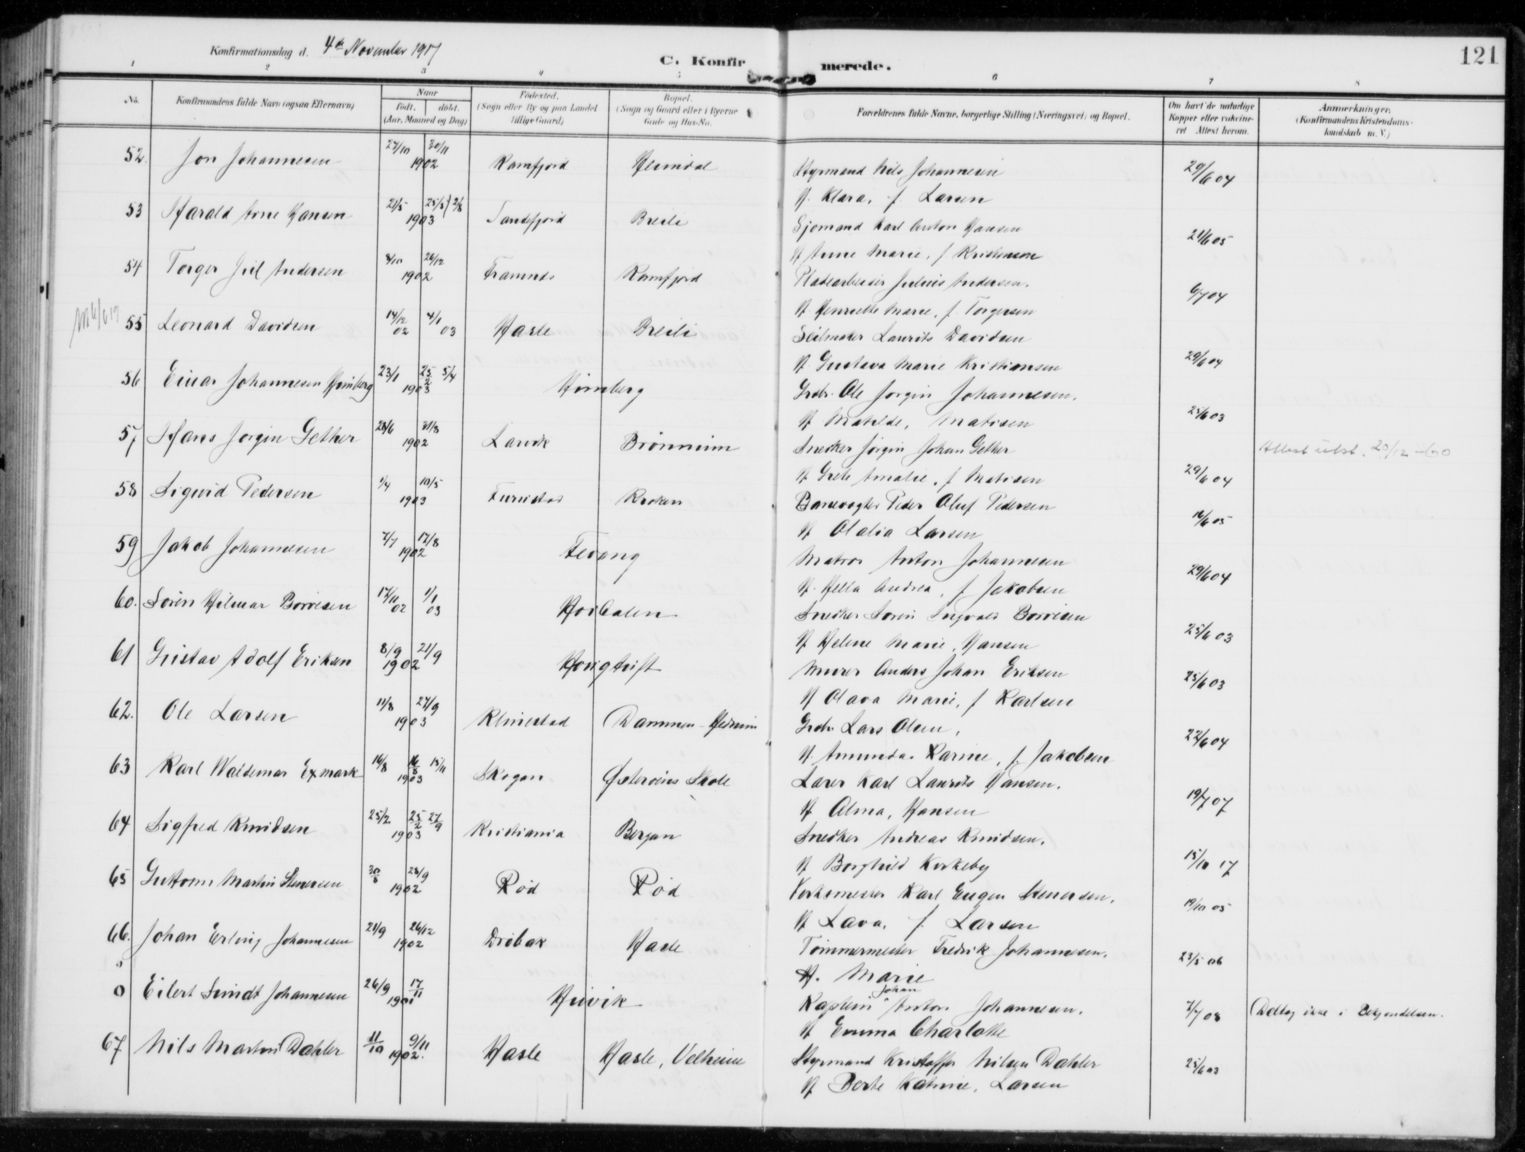 121
Konfirmationsdag d. 4de November 1917
C. Konfirmerede.
1 2 3 4 5 6 7 8
No.
Konfirmandens fulde Navn (ogsaa Efternavn)
Naar født. døbt. (Aar, Maaned og Dag)
Fødested. (Sogn eller By og paa Landet tillige Gaard)
Bopæl. (Sogn og Gaard eller i Byerne Gade og Hus-No.
Forældrenes fulde Navne, borgerlige Stilling (Næringsvei) og Bopæl.
Om havt de naturlige Kopper eller vaccineret Attest herom.
Anmerkninger. (Konfirmandens Kristendomskundskab m. V.)
52. Jon Johannesen 27/10 30/11 1902 Ramfjord Heimdal Styrmand Nils Johannesen 29/6 04
H. Klara, f. Larsen
53 Harald Arne Hansen 21/5 1903 Sandefjord Breili Sjømand Karl Anton Hansen 21/6 05
H Anne Marie, f. Kristensen
54 Torger Juel Andersen 26/12 1902 Framnes Ramfjord Pladearbeider Julius Andersen. 6/7 04
H Henriette Marie, f. Torgersen
55 Leonard Davidsen 14/12 02 4/1 03 Hasle Breili Seilmaker Laurits Davidsen 29/6 04
H Gustava Marie Kristiansen
56 Einar Johannesen Himberg 23/1 25/2 5/4 1903 Himberg Grdbr. Ole Jørgin Johannesen. 25/6 03
H Matilde, Matisen
57 Hans Jørgin Gether 28/6 31/8 1902 Larvik Brønnum Snedker Jørgin Johan Gether 29/6 04 Attest utst. 20/12-60
H Grete Amalie, f. Matisen
58 Sigurd Pedersen 1/4 10/5 1903 Furustad Kroken Banevogter Peder Oluf Pedersen 16/6 05
H Olalia Larsen
59 Jakob Johannesen 2/7 17/8 1902 Fevang Matros Anton Johannesen 29/6 04
H. Hella Andrea, f Jakobsen
60. Søren Hilmar Børresen 17/11 02 1/1 03 Hovdalen Snedker Søren Sigvald Børresen 25/6 03
H Helene Marie, Hansen
61 Gustav Adolf Eriksen 8/9 21/9 1902 Haugtuft Murer Anders Johan Eriksen 25/6 03
H Olava Marie, f Karlsen
62. Ole Larsen 11/8 27/9 1903 Klinestad Dammen - Grdbr Lars Olsen, 22/6 04
H. Amunda Karine, f. Jakobsen
63 Karl Waldemar Exmark 16/8 16/8 15/11 1903 Skogan Østerøens Skole Lærer Karl Laurits Hansen. 19/7 07
H Alma, Hansen
64 Sigfred Knudsen 25/2 25/2 27/9 1903 Kristiania Bergan Snedker Andreas Knudsen. 15/10 17
H Borghild Kirkeby
65 Guttorm Martin Stenersen 30/8 28/9 1902 Rød Rød Verksmester Karl Eugen Stenersen. 19/10 05
H Lava, f. Larsen
66. Johan Erling Johannesen 21/9 26/12 1902 Drøbak Hasle Tømmermester Fredrik Johannesen. 23/5 06
H. Marie
0 Eilert Sundt Johannesen 26/9 17/11 1901 Huvik Kaptein Johan Anton Johannesen. 7/7 08 (Deltog ikke i Bekjendelsen.
H Emma Charlotte
67 Nils Martens Dahler 11/10 9/11 1902. Hasle Hasle, Velheim Styrmand Kristoffer Nilsen Dahler 25/6 03
H Berte Katrine, Larsen